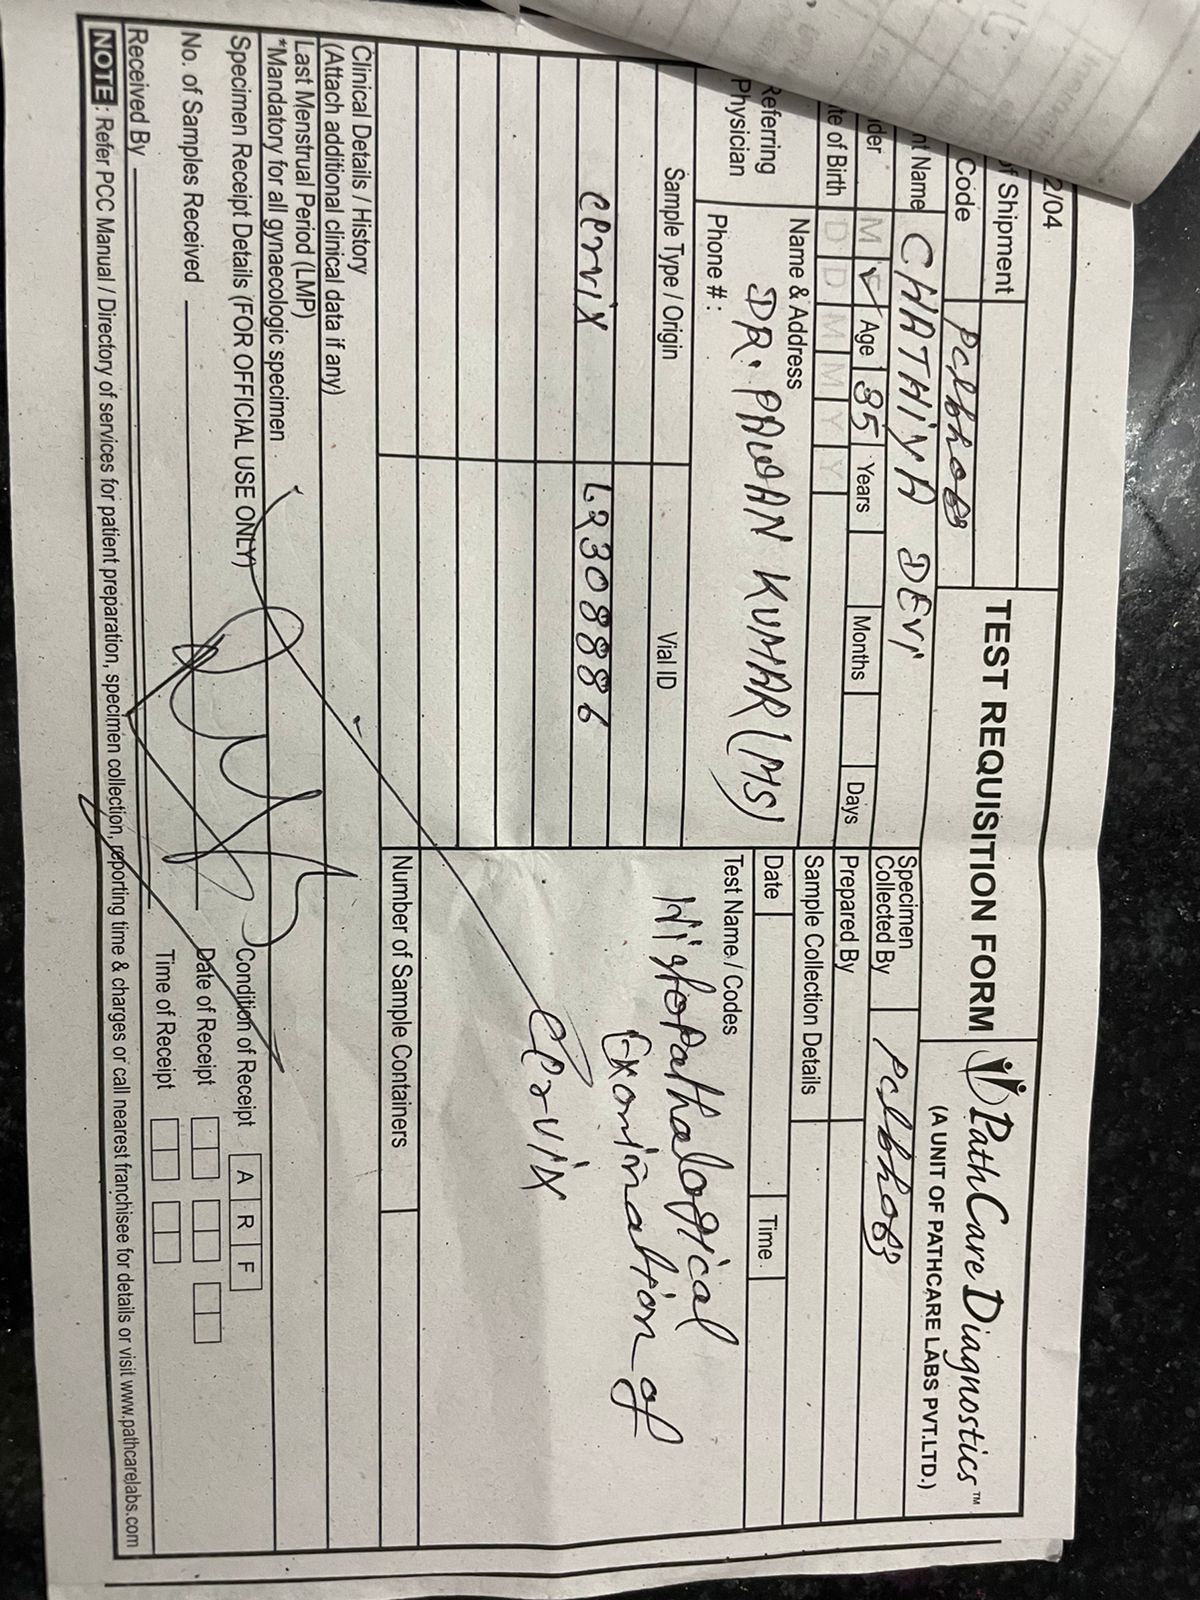 2/04
TEST REQUISITION FORM
PathCare Diagnostics™
(A UNIT OF PATHCARE LABS PVT.LTD.)
of Shipment
Code
nt Name CHATHIYA DEVI
der M Age 35 Years Months Days
te of Birth D D M M Y Y
Referring Physician
Name & Address
DR. PAWAN KUMAR (MS)
Phone # :
Specimen Collected By
Prepared By
Sample Collection Details
Date Time
Sample Type / Origin Vial ID
Cervix L2308886
Test Name / Codes
Histopathalogical
Examination of
Cervix
Number of Sample Containers
Clinical Details / History
(Attach additional clinical data if any)
Last Menstrual Period (LMP)
*Mandatory for all gynaecologic specimen
Specimen Receipt Details (FOR OFFICIAL USE ONLY)
Condition of Receipt A R F
No. of Samples Received
Date of Receipt
Received By
Time of Receipt
NOTE : Refer PCC Manual / Directory of services for patient preparation, specimen collection, reporting time & charges or call nearest franchisee for details or visit www.pathcarelabs.com